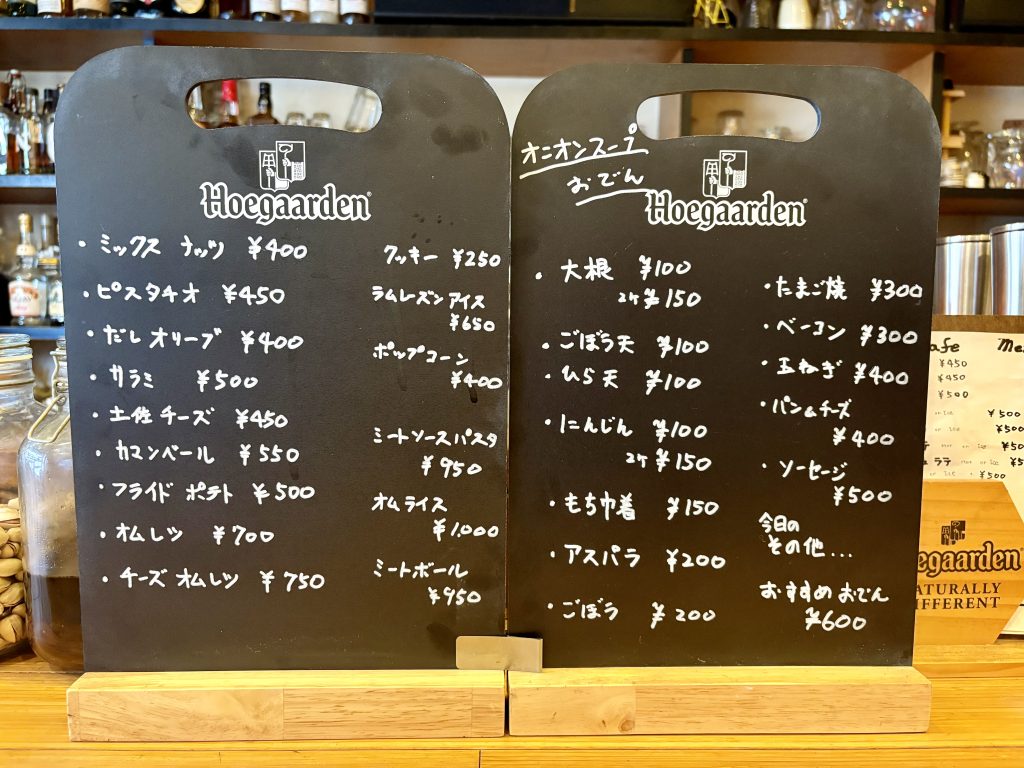 Hoegaarden
・ミックス ナッツ ¥400
・ピスタチオ ¥450
・だし オリーブ ¥400
・サラミ ¥500
・土佐チーズ ¥450
・カマンベール ¥550
・フライド ポテト ¥500
・オムレツ ¥700
・チーズ オムレツ ¥750
クッキー ¥250
ラムレーズン アイス
¥650
ポップコーン
¥400
ミートソースパスタ
¥950
オムライス
¥1.000
ミートボール
¥950
オニオンスープ
おでん
Hoegaarden
・大根 ¥100
2ケ ¥150
・ごぼう天 ¥100
・ひら天 ¥100
・にんじん ¥100
2ケ ¥150
・もち巾着 ¥150
・アスパラ ¥200
・ごぼう ¥200
・たまご焼 ¥300
・ベーコン ¥300
・玉ねぎ ¥400
・パン&チーズ
¥400
・ソーセージ
¥500
今日の
その他...
おすすめ おでん
¥600
afe
¥450
¥450
¥500
¥500
¥500
ラテ
¥500
egaarden
NATURALLY
DIFFERENT